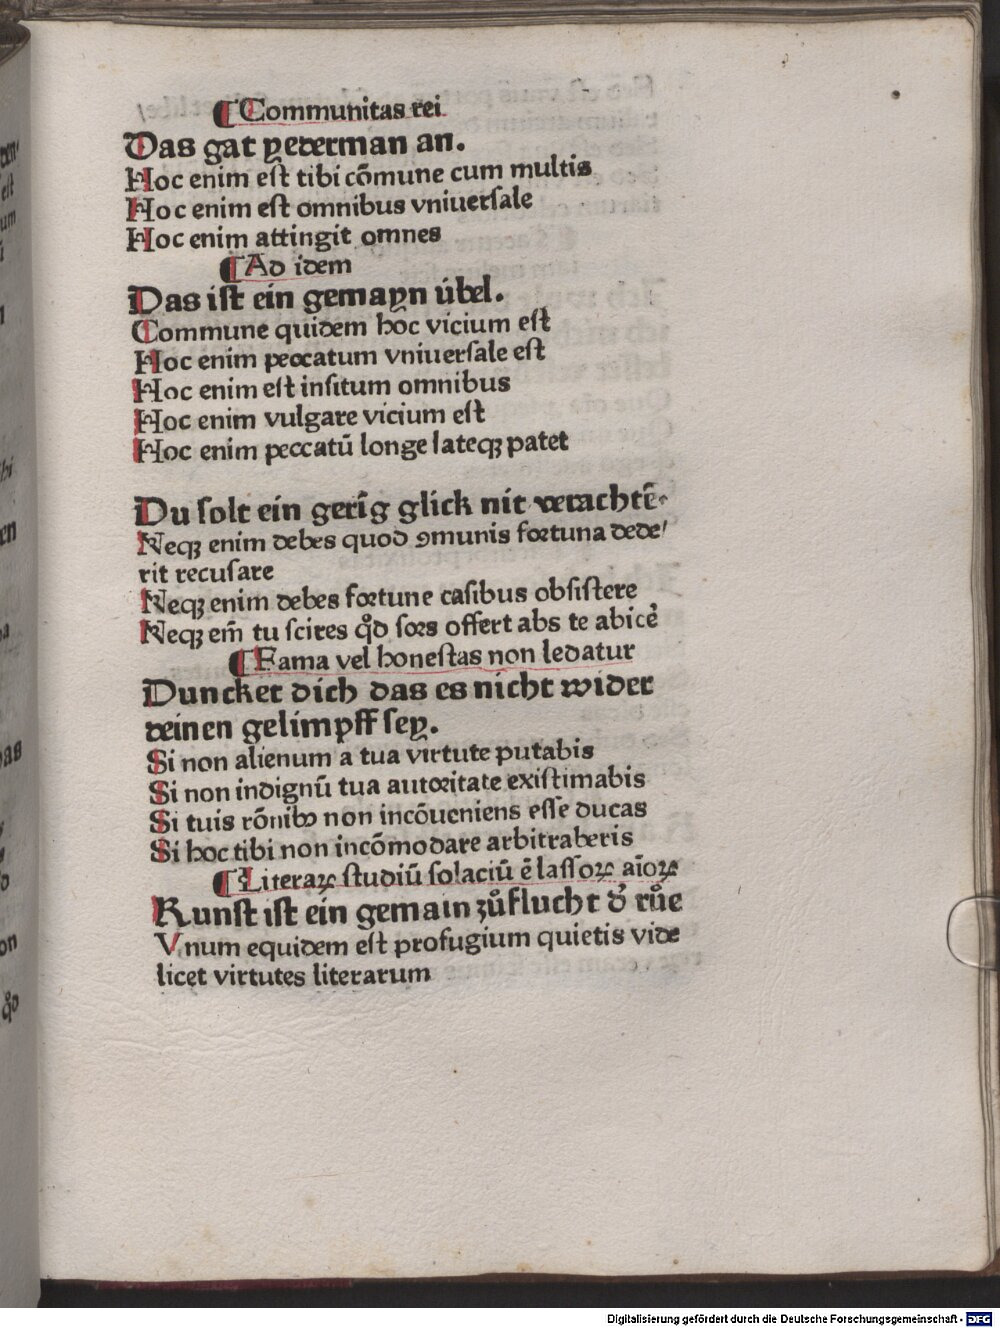 ¶ Communitas rei
Das gat yederman an.
Hoc enim eſt tibi cōmune cum multis
Hoc enim eſt omnibus vniuerſale
Hoc enim attingit omnes
¶ Ad idem
Das iſt ein gemayn úbel.
Commune quidem hoc vicium eſt
Hoc enim peccatum vniuerſale eſt
Hoc enim eſt inſitum omnibus
Hoc enim vulgare vicium eſt
Hoc enim peccatū longe lateqꝫ patet
Du ſolt ein gerīg glick nit verachtē.
Neqꝫ enim debes quod ꝯmunis fortuna dede/
rit recuſare
Neqꝫ enim debes fortune caſibus obſiſtere
Neqꝫ em̄ tu ſcires qd̊ ſors offert abs te abice᷑
¶ Fama vel honeſtas non ledatur
Duncket dich das es nicht wider
deinen gelimpff ſey.
Si non alienum a tua virtute putabis
Si non indignū tua autoritate exiſtimabis
Si tuis rōnibꝰ non incōueniens eſſe ducas
Si hoc tibi non incōmodare arbitraberis
¶ Literaꝝ ſtudiū ſolaciū ē laſſoꝝ aīoꝝ
Kunſt iſt ein gemain zůflucht d̕ růe
Vnum equidem eſt profugium quietis vide
licet virtutes literarum
Digitalisierung gefördert durch die Deutsche Forschungsgemeinschaft - DFG